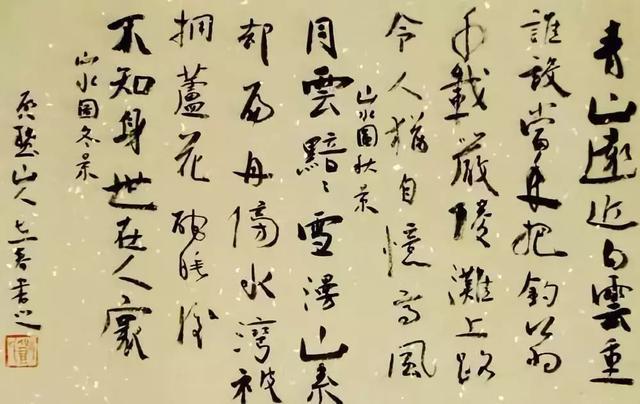 青山遠近白雲重
誰設當年把釣翁
千載嚴陵灘上路
令人猶自憶高風
山水圖秋景
同雲黯々雪漫山系
却扁舟傍水灣被
擁蘆花酣睡後
不知身世在人寰
山水圖冬景
山人 春書之